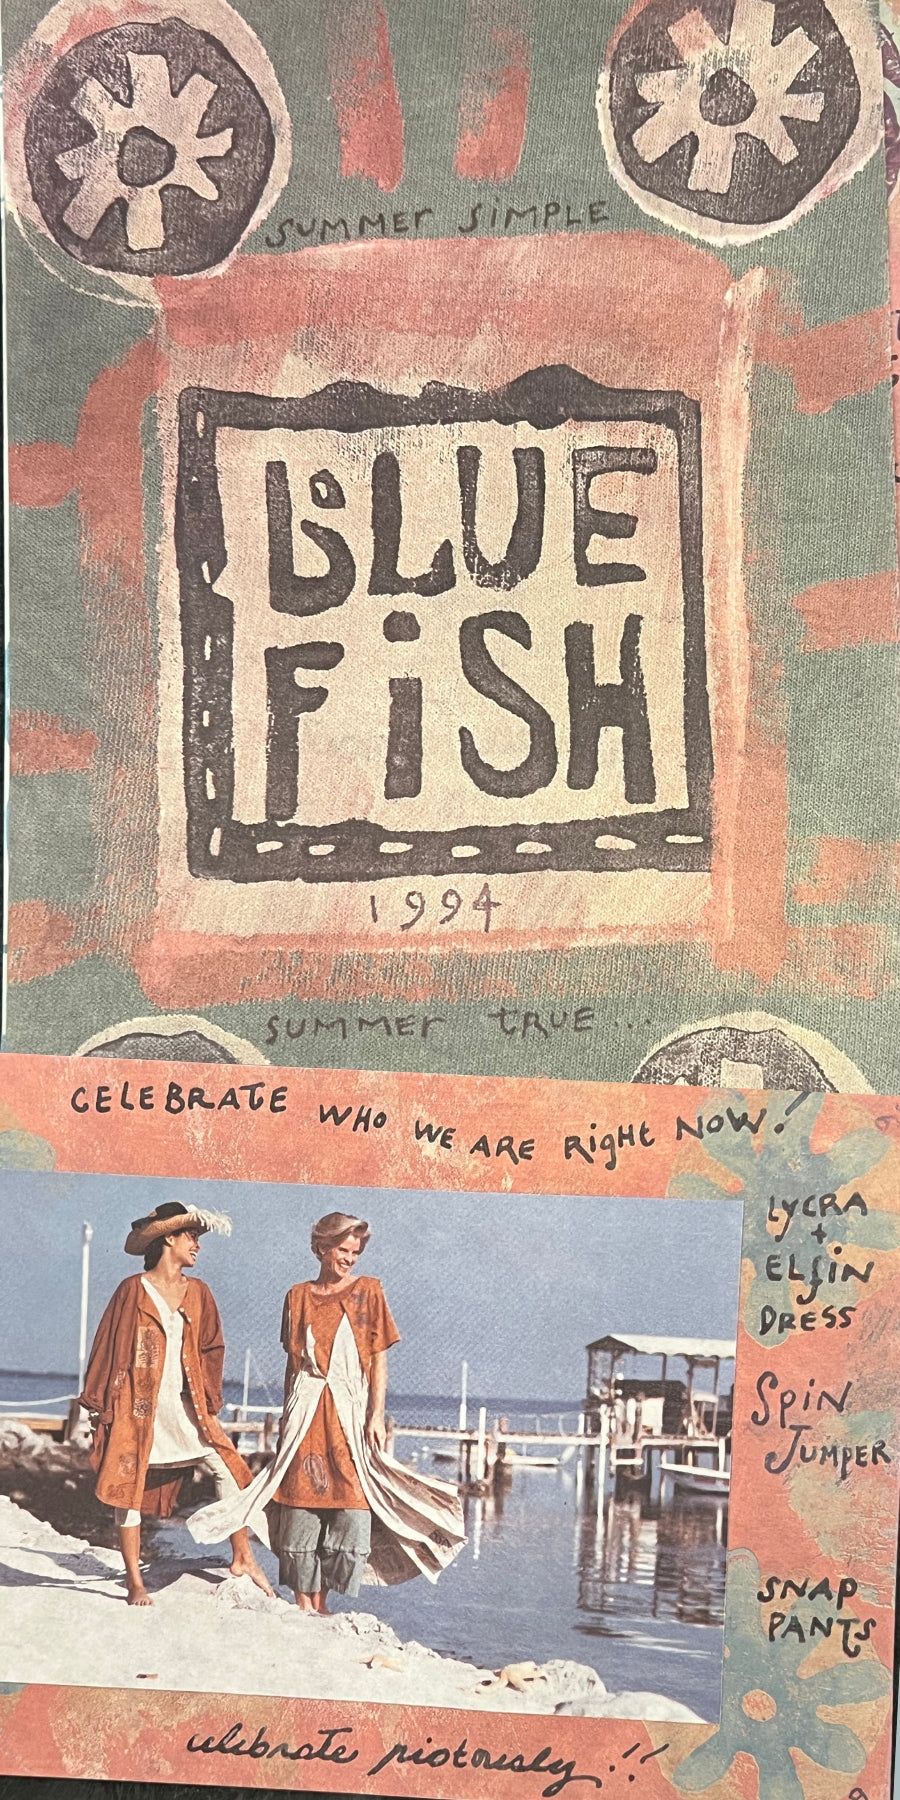 SUMMER SiMPLE
BLUE
FiSH
1994
SUMMER tRUE...
CELEBRATE WHO WE ARE RigHt NOW!
LYCRA
+
ELfiN
DRESS
SpiN
JUMPER
SNAP
PANTS
celebrate riotously!!